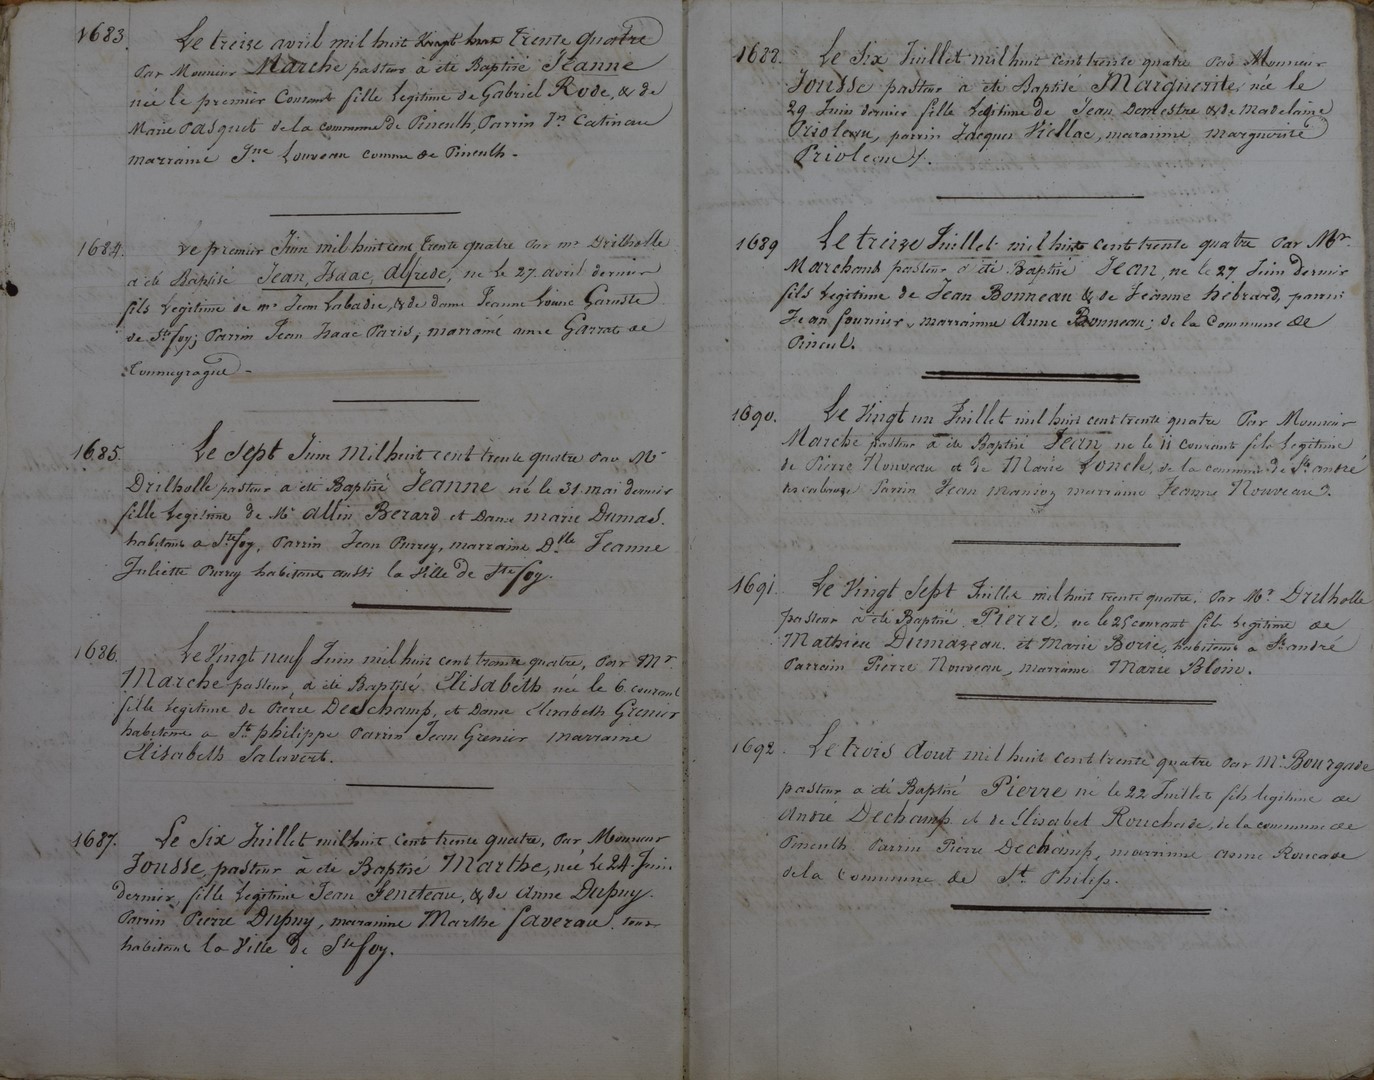 1683. Le treize avril mil huit trente quatre
Par Monsieur Marche pasteur a été Baptisé Jeanne
née le premier Courant fille Legitime de Gabriel Rode, & de
Marie Pasquet de la commune de Pineuilh, Parrin Jn Catineau
marraine Jne Louveau comme de Pineuilh.
1684. Le premier Juin mil huit cent Trente quatre Par mr Drilholle
a été Baptisé Jean, Isaac, Alfrede, né le 27. avril dernier
fils Legitime de mr Jean Labadie, & de dame Jeanne Louise
de Ste foy; Parrin Jean Isaac Paris, marraine Garrat de
1685. Le Sept Juin Mil huit cent trente quatre Par Mr
Drilholle pasteur a été Baptisé Jeanne né le 31 mai dernier
fille Legitime de Mr Allin Berard et Dame marie Dumas.
habitant a Ste foy, Parrin Jean Purrey, marraine Dlle Jeanne
Juliette Purrey habitans aussi la Ville de Ste foy.
1686. Le Vingt neuf Juin mil huit cent trente quatre, Par Mr
Marche pasteur, a été Baptisé Elisabeth née le 6 courant
fille Legitime de Pierre Deschamp, et Dame Elisabeth Grenier
habitans a St philippe Parrin Jean Grenier marraine
Elisabeth Salavert.
1687. Le Six Juillet mil huit Cent trente quatre, Par Monsieur
Jousse, pasteur à été Baptisé Marthe, née le 24 Juin
dernier, fille Legitime Jean Feneteau, & de Anne Dupuy.
Parrin Pierre Dupuy, maraine Marthe faverau, tous
habitans la Ville de Ste foy.
1688. Le Six Juillet mil huit cent trente quatre Par Monsieur
Jousse pasteur a été Baptisé Marguerite, née le
29 Juin dernier fille Legitime de Jean Demestre & de Madelaine
Prioleau, parrin Jacques Viellac, maraine marguerite
Prioleau.
1689 Le treize Juillet mil huit cent trente quatre Par Mr
Marchand pasteur a été Baptisé Jean, né le 27 Juin dernier
fils Legitime de Jean Bonneau & de Jeanne hébrard, parrin
Jean fournier, marraine Anne Bonneau; de la Commune de
Pineul.
1690. Le Vingt un Juillet mil huit cent trente quatre Par Monsieur
Marche pasteur a été Baptisé Jean né le 11 courant fils Legitime
de Pierre Nouveau et de Marie Loncle, de la commune de St andré
Parrin Jean marraine Jeanne Nouveau.
1691. Le Vingt Sept Juillet mil huit trente quatre. Par Mr Drilholle
pasteur à été Baptisé Pierre, né le 25 courant fils Legitime de
Mathieu Dumazeau et Marie Borie, habitans a St andré
Parrain Pierre Nouveau, marraine Marie Bloin.
1692. Le trois Aout mil huit cent trente quatre Par Mr Bourgade
pasteur a été Baptisé Pierre né le 22 Juillet fils legitime de
André Dechamp et de Elisabet Rouchade, de la commune de
Pineuilh Parrin Pierre Dechamp, marraine anne Roucade
de la Commune de St Philip.